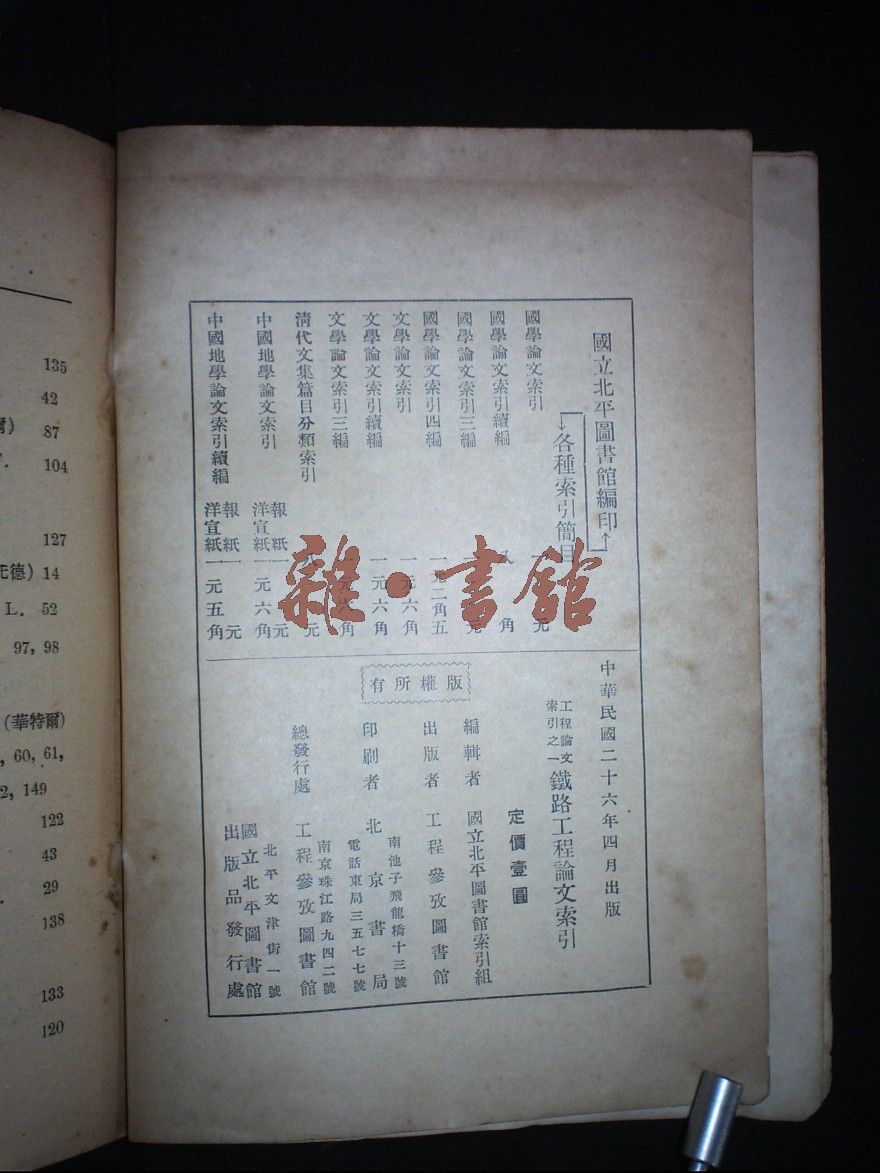 國立北平圖書館編印
各種索引簡目
國學論文索引 一元
國學論文索引續編 八角
國學論文索引三編 元
國學論文索引四編 一元二角五
文學論文索引 一元六角
文學論文索引續編 一元六角
文學論文索引三編 一元六角
清代文集篇目分類索引 元
中國地學論文索引 報紙一元
洋宣紙一元六角
中國地學論文索引續編 報紙一元
洋宣紙一元五角
雜·書館
中華民國二十六年四月出版
工程論文
索引之一
鐵路工程論文索引
定價壹圓
編輯者 國立北平圖書館索引組
出版者 工程參攷圖書館
南池子飛龍橋十三號
印刷者 北京書局
電話東局三五七七號
南京珠江路九四二號
總發行處 工程參攷圖書館
北平文津街一號
國立北平圖書館
出版品發行處
版權所有
135
42
爾) 87
104
127
德) 14
L. 52
97, 98
(華特爾)
, 60, 61,
2, 149
122
43
29
138
133
120